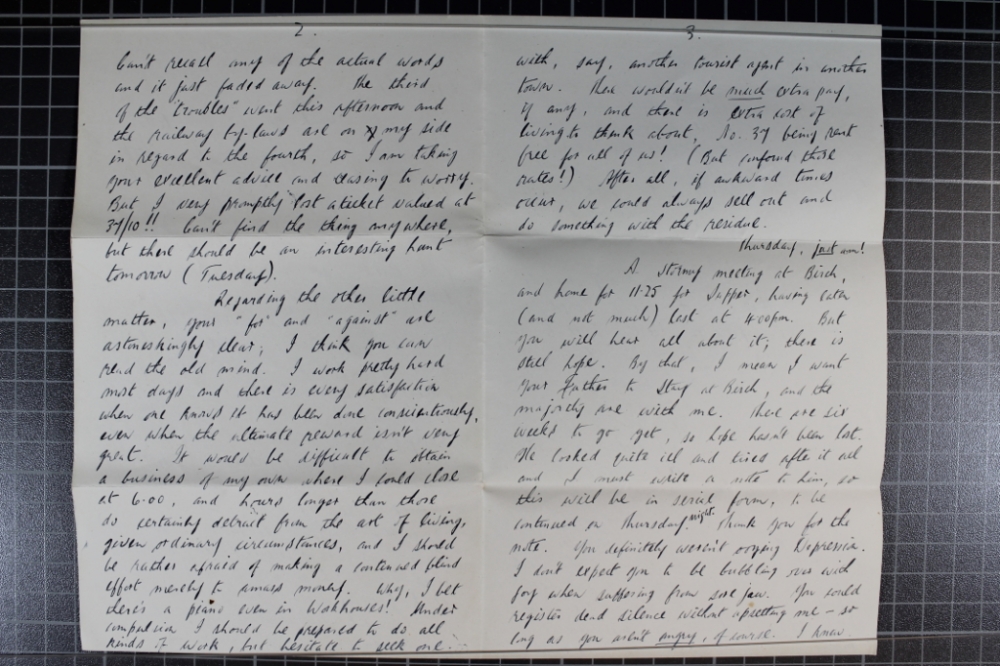 2.
Can't recall any of the actual words
and it just faded away. The third
of the "troubles" went this afternoon and
the railway by-laws are on my side
in regard to the fourth, so I am taking
your excellent advice and ceasing to worry.
But I very promptly lost a ticket valued at
37/10!! Can't find the thing anywhere,
but there should be an interesting hunt
tomorrow (Tuesday).
Regarding the other little
matter, your "for" and "against" are
astonishingly clear; I think you can
read the old mind. I work pretty hard
most days and there is every satisfaction
when one knows it has been done conscientiously,
even when the ultimate reward isn't very
great. It would be difficult to obtain
a business of my own where I could close
at 6.00, and hours longer than those
do certainly detract from the art of living,
given ordinary circumstances, and I should
be rather afraid of making a continued blind
effort merely to amass money. Why, I bet
there's a piano even in Workhouses! Under
compulsion I should be prepared to do all
kinds of work, but hesitate to seek one.
3.
with, say, another tourist agent in another
town. There wouldn't be much extra pay,
if any, and there is extra cost of
living to think about, No. 37 being rent
free for all of us! (But confound those
rates!) After all, if awkward times
occur, we could always sell out and
do something with the residue.
Thursday, just am!
A stormy meeting at Birch,
and home for 11.25 for supper, having eaten
(and not much) last at 4.00pm. But
you will hear all about it; there is
still hope. By that, I mean I want
your father to stay at Birch, and the
majority are with me. There are six
weeks to go yet, so hope hasn't been lost.
He looked quite ill and tired after it all
and I must write a note to him, so
this will be in serial form, to be
continued on Thursday night. Thank you for the
note. You definitely weren't oozing Depression.
I don't expect you to be bubbling over with
joy when suffering from sore jaw. You could
register dead silence without upsetting me – so
long as you aren't angry, of course. I know